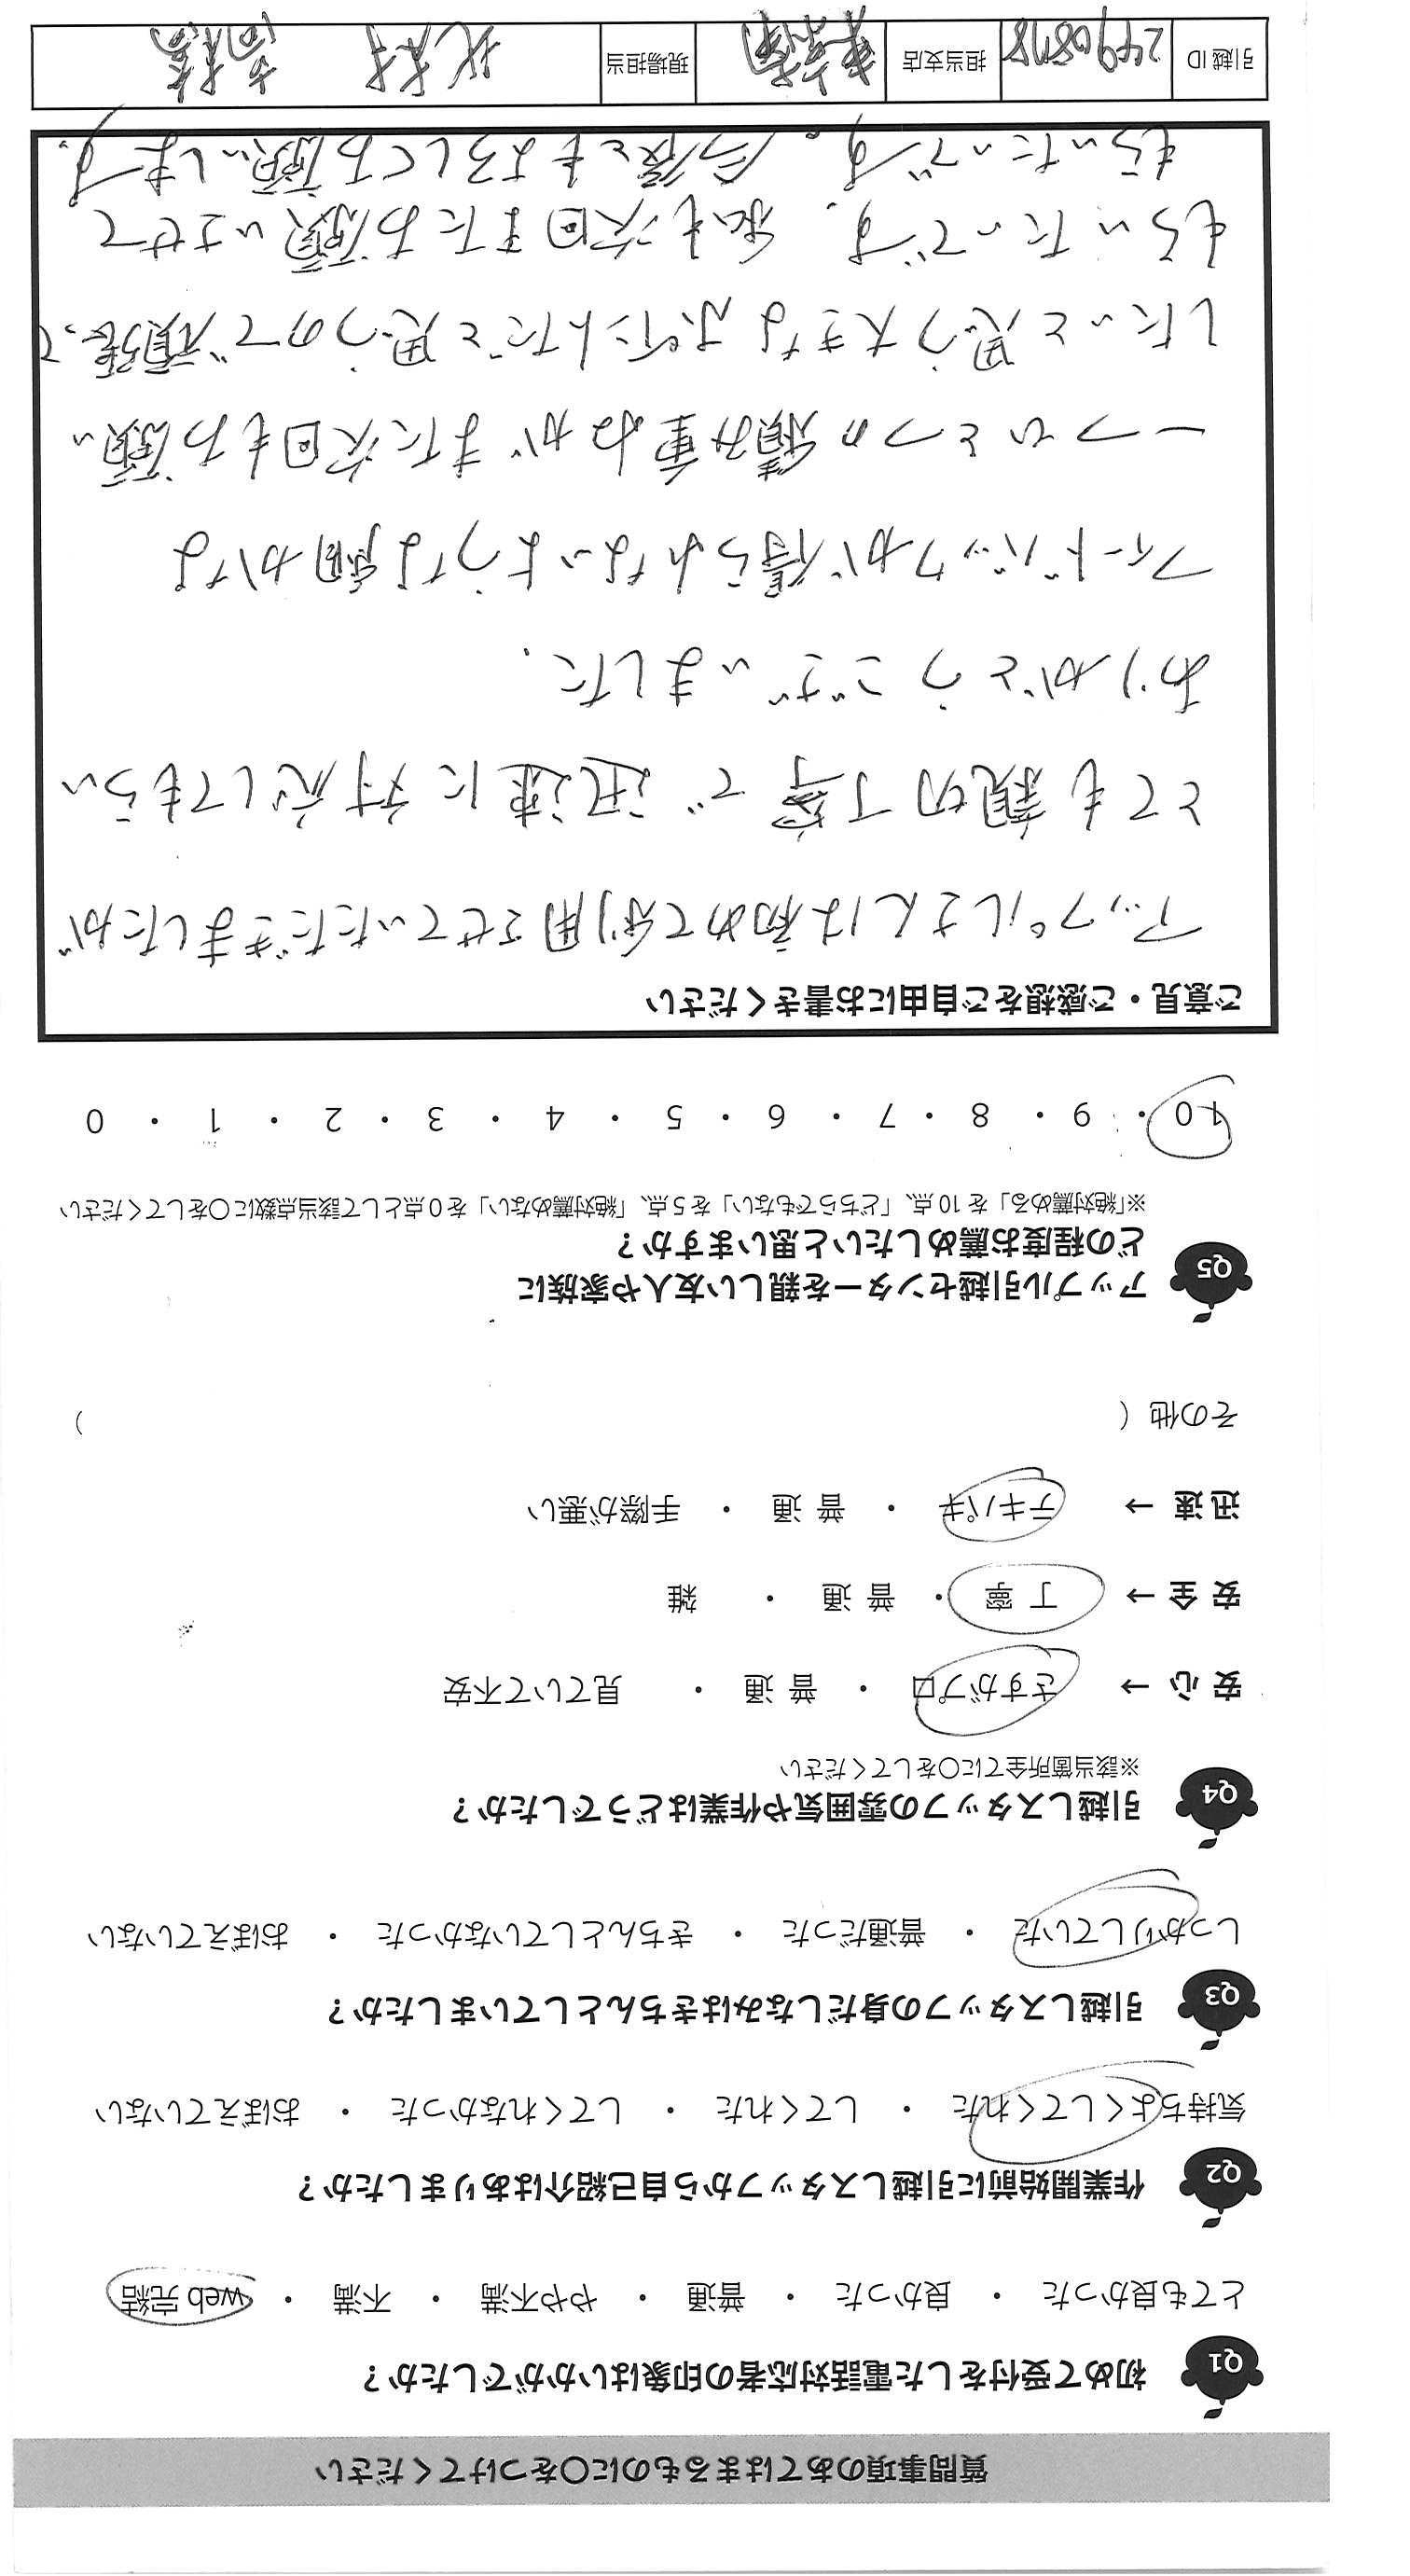 質問事項のあてはまるものに〇をつけてください
Q1 初めて受付をした電話対応者の印象はいかがでしたか？
とても良かった ・ 良かった ・ 普通 ・ やや不満 ・ 不満 ・ web 完結
Q2 作業開始前に引越しスタッフから自己紹介はありましたか？
気持ちよくしてくれた ・ してくれた ・ してくれなかった ・ おぼえていない
Q3 引越しスタッフの身だしなみはきちんとしていましたか？
しっかりしていた ・ 普通だった ・ きちんとしていなかった ・ おぼえていない
Q4 引越しスタッフの雰囲気や作業はどうでしたか？
※該当箇所全てに〇をしてください
安 心 → さすがプロ ・ 普 通 ・ 見ていて不安
安 全 → 丁 寧 ・ 普 通 ・ 雑
迅 速 → テキパキ ・ 普 通 ・ 手際が悪い
その他（ ）
Q5 アップル引越センターを親しい友人や家族に
どの程度お薦めしたいと思いますか？
※「絶対薦める」を 10 点、「どちらでもない」を 5 点、「絶対薦めない」を 0 点として該当点数に〇をしてください
10 ・ 9 ・ 8 ・ 7 ・ 6 ・ 5 ・ 4 ・ 3 ・ 2 ・ 1 ・ 0
ご意見・ご感想をご自由にお書きください
アップルさんは初めて利用させていただきましたが
とても親切丁寧で迅速に対応してもらい
ありがとうございました.
フィードバックが得られないような細かな
一つひとつの積み重ねがまた次回もお願い
したいと思う大きなポイントだと思うので頑張って
もらいたいです. 私も次回またお願いさせて
もらいたいです。今後ともよろしくお願いします.
引越 ID 24908718 担当支店 現場担当 北村 高橋